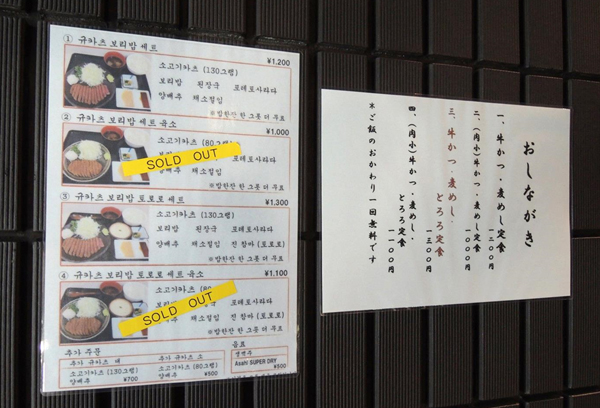 ① 규카츠 보리밥 세트
¥1,200
소고기카츠 (130그램)
보리밥 된장국 포테토사라다
양배추 채소절임
※밥한잔 한 그릇 더 무료
② 규카츠 보리밥 세트 육소
¥1,000
소고기카츠 (80그램)
SOLD OUT
포테토사라다
양배추 채소절임
※밥한잔 한 그릇 더 무료
③ 규카츠 보리밥 토로로 세트
¥1,300
소고기카츠 (130그램)
보리밥 된장국 포테토사라다
양배추 채소절임 진 참마 (토로로)
※밥한잔 한 그릇 더 무료
④ 규카츠 보리밥 토로로 세트 육소
¥1,100
소고기카츠 (80
SOLD OUT
포테토사라다
채소절임 진 참마 (토로로)
※밥한잔 한 그릇 더 무료
추가 주문
추가 규카츠 대
소고기카츠 (130그램)
양배추 ¥700
추가 규카츠 소
소고기카츠 (80그램)
양배추 ¥500
음료
생맥주
Asahi SUPER DRY
¥500
おしながき
一、牛かつ・麦めし定食
一二〇〇円
二、(肉小)牛かつ・麦めし定食
一〇〇〇円
三、牛かつ・麦めし・
とろろ定食
一三〇〇円
四、(肉小)牛かつ・麦めし・
とろろ定食
一一〇〇円
＊ご飯のおかわり一回無料です